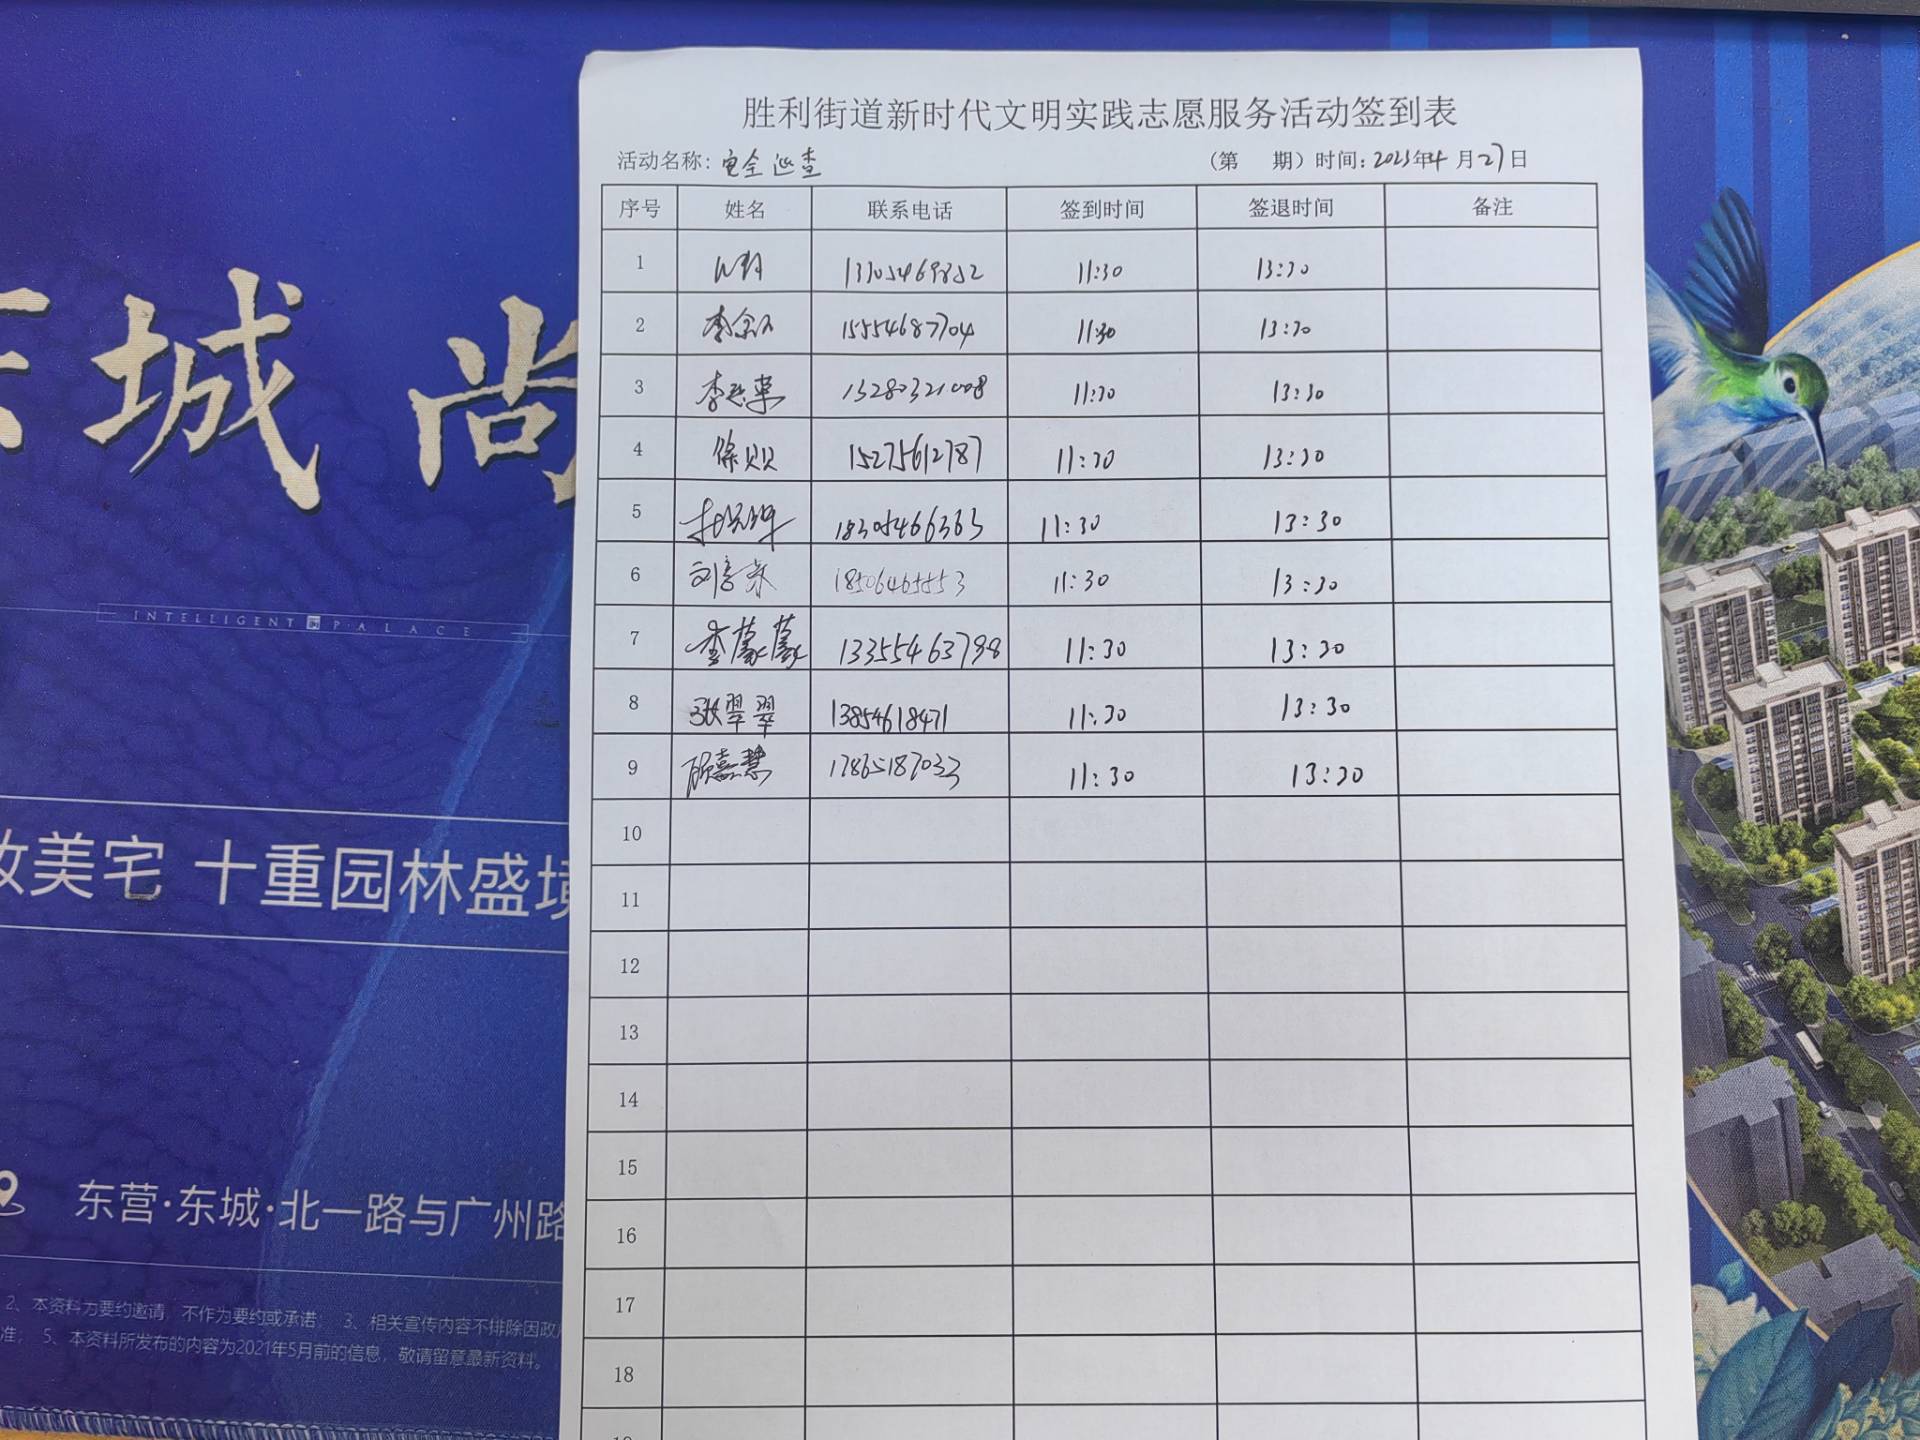 胜利街道新时代文明实践志愿服务活动签到表
活动名称：安全巡查 （第 期）时间：2023年4月27日
序号 姓名 联系电话 签到时间 签退时间 备注
1 11:30 13:30
2 15554687704 11:30 13:30
3 13280321008 11:30 13:30
4 徐贝贝 15275612787 11:30 13:30
5 18305466363 11:30 13:30
6 11:30 13:30
7 李蒙蒙 13355463798 11:30 13:30
8 张翠翠 13854618471 11:30 13:30
9 顾嘉慧 17865187033 11:30 13:30
10
11
12
13
14
15
16
17
18
城 尚
INTELLIGENT PALACE
美宅 十重园林盛境
东营·东城·北一路与广州路
2、本资料为要约邀请，不作为要约或承诺； 3、相关宣传内容不排除因政
准； 5、本资料所发布的内容为2021年5月前的信息，敬请留意最新资料。